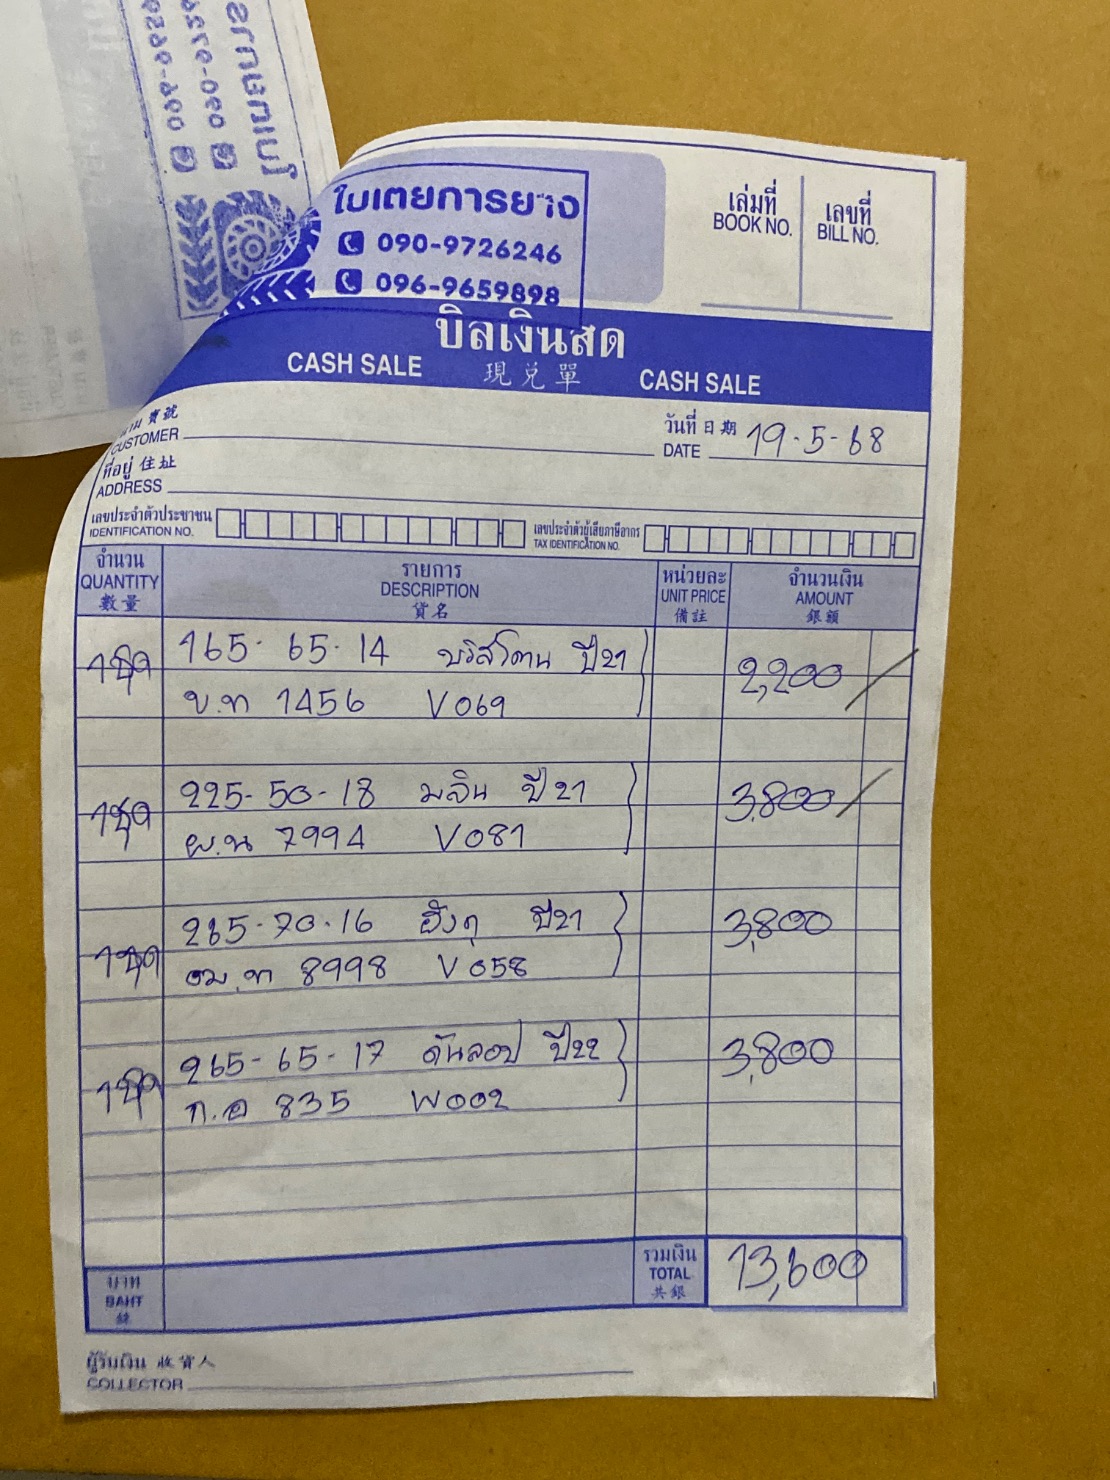 ใบเตยการยาง
090-9726246
096-9659898
เล่มที่
BOOK NO.
เลขที่
BILL NO.
บิลเงินสด
CASH SALE 現兌單 CASH SALE
寶號
CUSTOMER
วันที่ 日期
DATE 19-5-68
ที่อยู่ 住址
ADDRESS
เลขประจำตัวประชาชน
IDENTIFICATION NO.
เลขประจำตัวผู้เสียภาษีอากร
TAX IDENTIFICATION NO.
จำนวน
QUANTITY
數量
รายการ
DESCRIPTION
貨名
หน่วยละ
UNIT PRICE
備註
จำนวนเงิน
AMOUNT
銀額
1ชุด 165-65-14 บริสโตน ปี21 2,200
ข.ท 1456 V069
1ชุด 225-50-18 มลิน ปี21 3,800
ผ.น 7994 V081
1ชุด 265-70-16 ฮังกุ ปี21 3,800
ฒ.ท 8998 V058
1ชุด 265-65-17 ดันลอป ปี22 3,800
ก.อ 835 W002
บาท
BAHT
銖
รวมเงิน
TOTAL
共銀
13,600
ผู้รับเงิน 收貨人
COLLECTOR